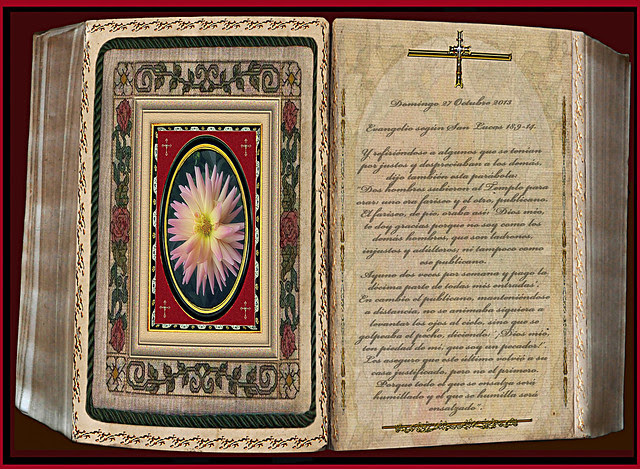 Domingo 27 Octubre 2013
Evangelio según San Lucas 18,9-14.
Y refiriéndose a algunos que se tenían
por justos y despreciaban a los demás,
dijo también esta parábola:
"Dos hombres subieron al Templo para
orar: uno era fariseo y el otro, publicano.
El fariseo, de pie, oraba así: 'Dios mío,
te doy gracias porque no soy como los
demás hombres, que son ladrones,
injustos y adúlteros; ni tampoco como
ese publicano.
Ayuno dos veces por semana y pago la
décima parte de todas mis entradas'.
En cambio el publicano, manteniéndose
a distancia, no se animaba siquiera a
levantar los ojos al cielo, sino que se
golpeaba el pecho, diciendo: '¡Dios mío,
ten piedad de mí, que soy un pecador!'.
Les aseguro que este último volvió a su
casa justificado, pero no el primero.
Porque todo el que se ensalza será
humillado y el que se humilla será
ensalzado".